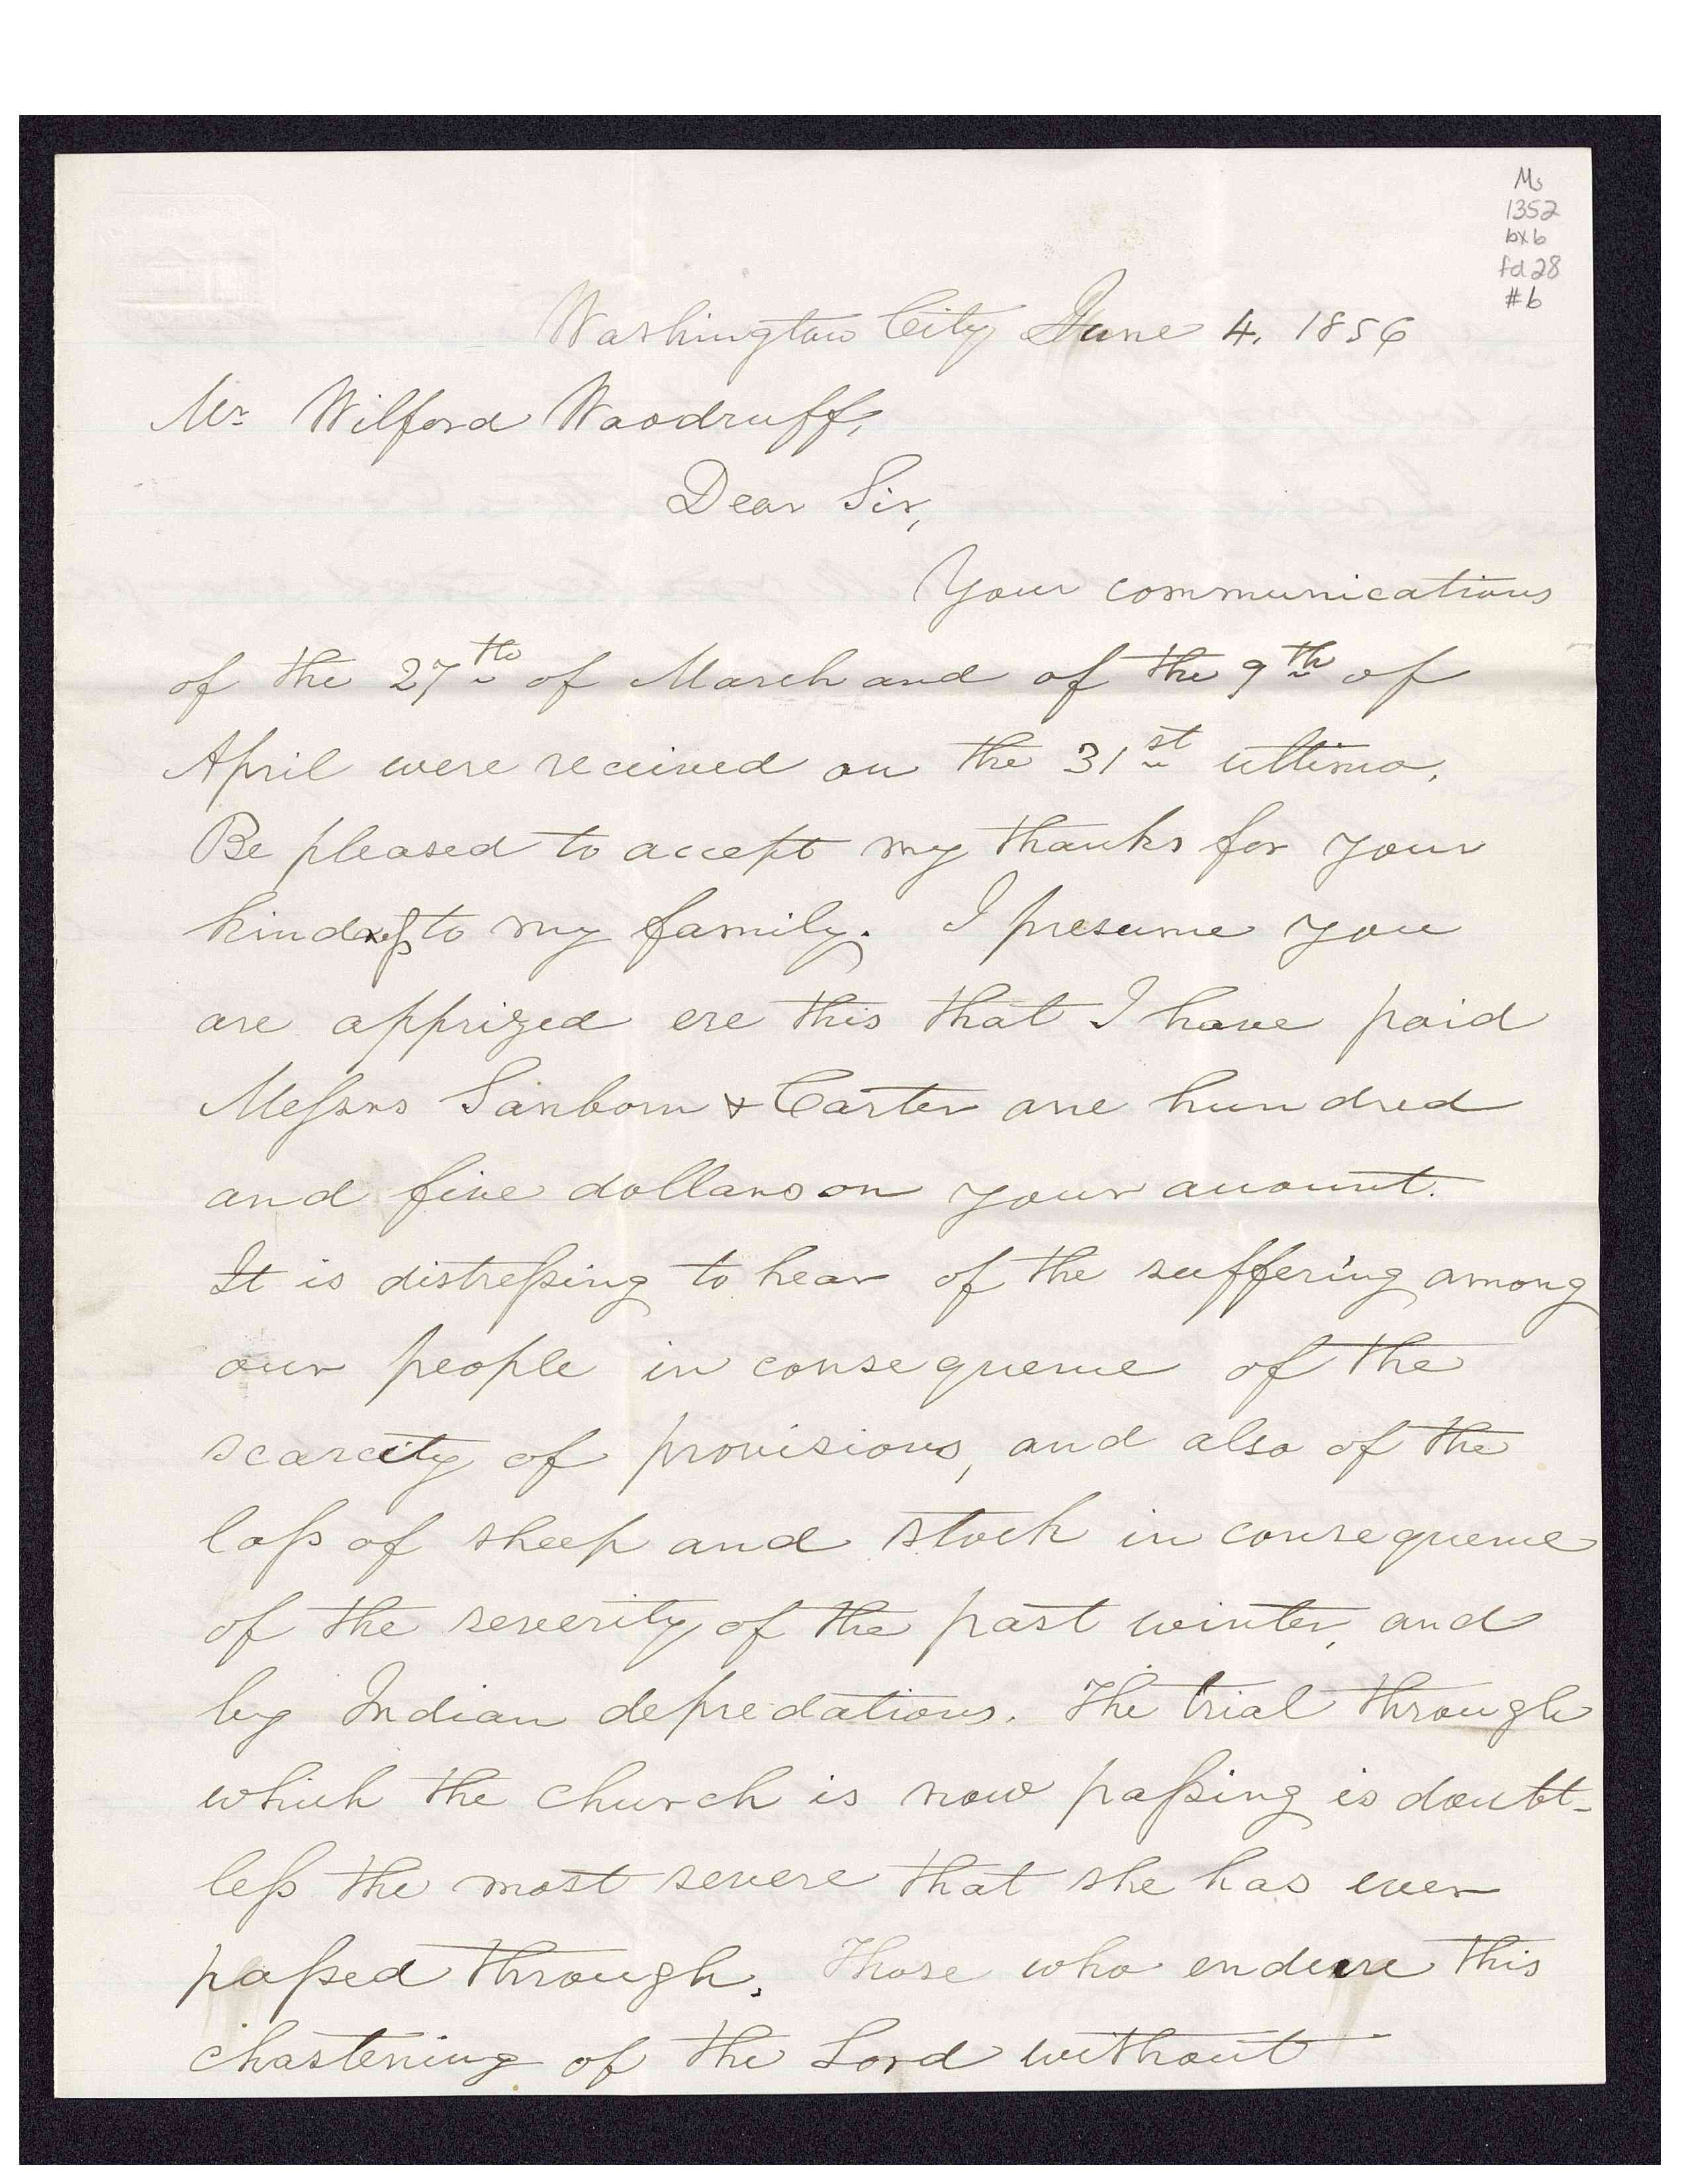 Ms
1352
bx6
fd 28
#6
Washington City June 4, 1856
Mr Wilford Woodruff,
Dear Sir,
Your communications
of the 27th of March and of the 9th of
April were received on the 31st ultimo.
Be pleased to accept my thanks for your
kindneſs to my family. I presume you
are apprized ere this that I have paid
Meſsrs Sanborn & Carter one hundred
and five dollars on your account.
It is distreſsing to hear of the suffering among
our people in consequence of the
scarcity of provisions, and also of the
loſs of sheep and stock in consequence
of the severity of the past winter, and
by Indian depredations. The trial through
which the church is now paſsing is doubt-
leſs the most severe that she has ever
paſsed through. Those who endure this
chastening of the Lord without